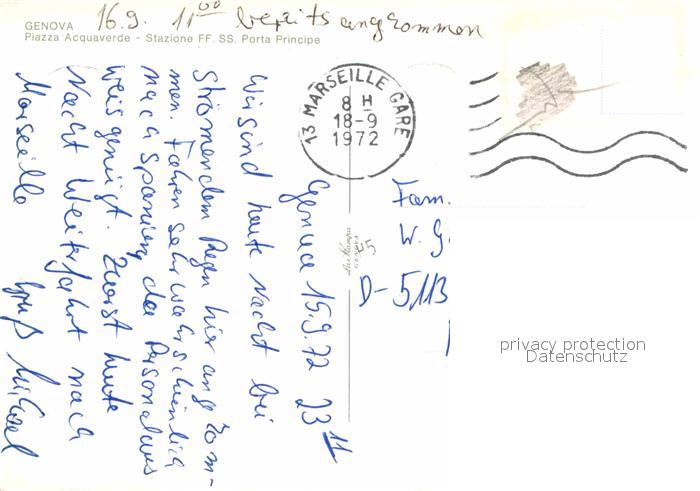 16.9. 11⁰⁰ bereits angekommen
GENOVA
Piazza Acquaverde - Stazione FF. SS. Porta Principe
13 MARSEILLE GARE
8 H
18-9
1972
Genua 15.9.72 23¹¹
Wir sind heute Nacht bei
strömendem Regen hier angekom-
men. Fahren sehr wahrscheinlich
nach Spanien, da Personalaus
weis genügt. Zuerst heute
Nacht Weiterfahrt nach
Marseille Gruß Michael
Fam.
W. G.
D-5113
45
privacy protection
Datenschutz